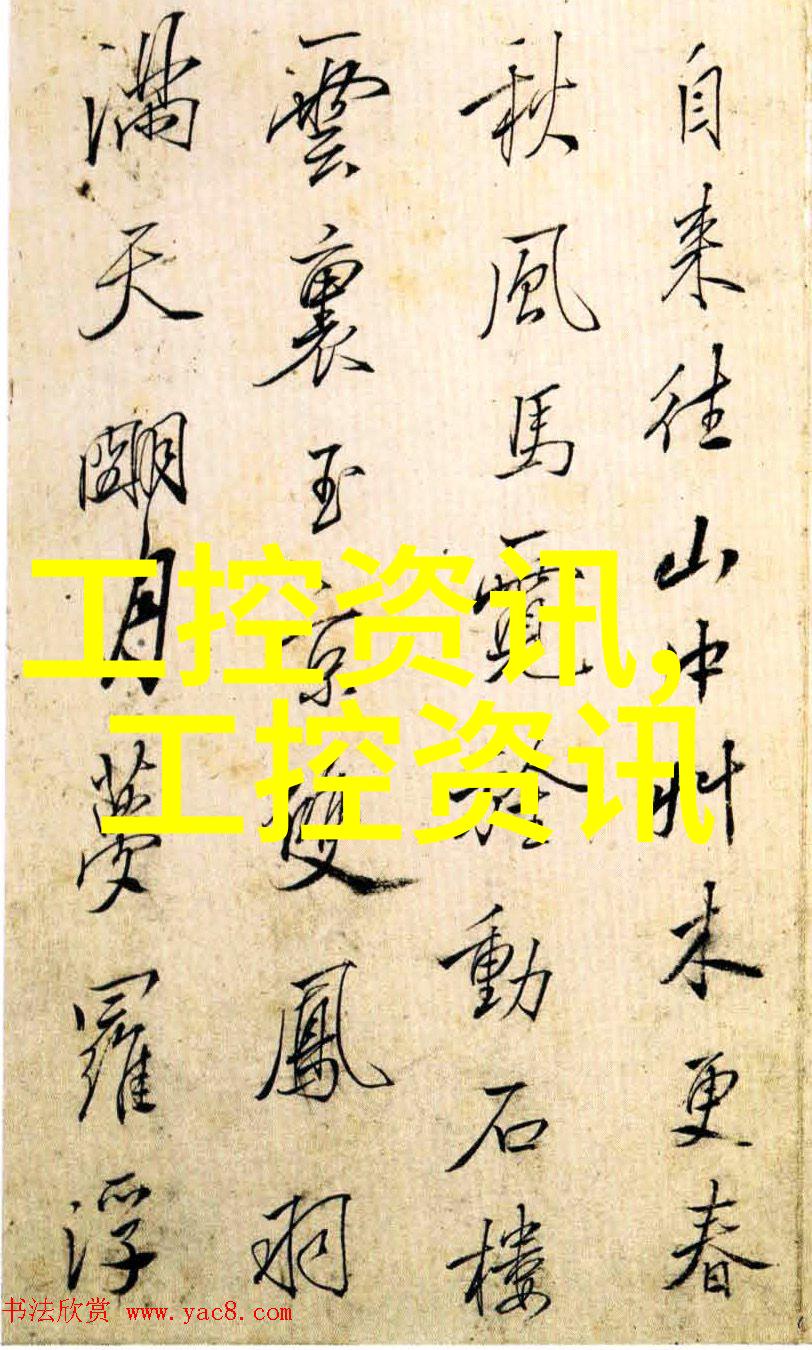 自来往山中艸木更春
秋風馬覓於動石樓
雲裏玉京雙鳳羽
滿天明月夢羅浮
工控资讯,
工控资讯
书法欣赏 www.yac8.com